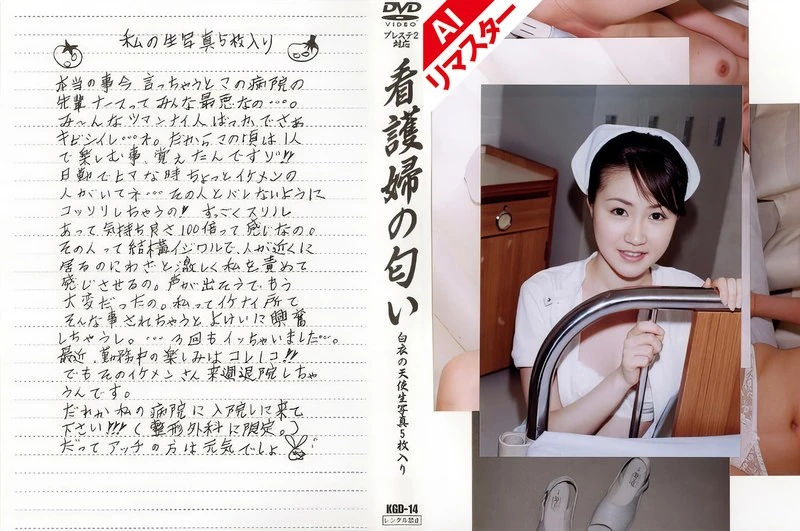 私の生写真5枚入り
本当の事今言っちゃうとこの病院の
先輩ナースってみんな最悪なの…。
み〜んなツマンナイ人ばっかでさぁ
キビシイし…ネ。だからこの頃は1人
で楽しむ事、覚えたんですゾ!!
日勤でヒマな時ちょっとイケメンの
人がいてネ…その人とバレないように
コッソリしちゃうの!! すっごくスリル
あって気持ち良さ100倍って感じなの。
その人って結構イジワルで、人が近くに
居るのにわざと激しく私を責めて
感じさせるの。声が出そうでもう
大変だったの。私ってイケナイ所で
そんな事されちゃうとよけいに興奮
しちゃうし。…3回もイッちゃいました…。
最近、勤務中の楽しみはコレ1コ!!
でもそのイケメンさん来週退院しちゃ
うんです。
だれか私の病院に入院しに来て
下さい!!!(整形外科に限定。)
だってアッチの方は元気でしょ
DVD
VIDEO
プレステ2
対応
看護婦の匂い
白衣の天使生写真5枚入り
KGD-14
レンタル禁止
AI
リマスター